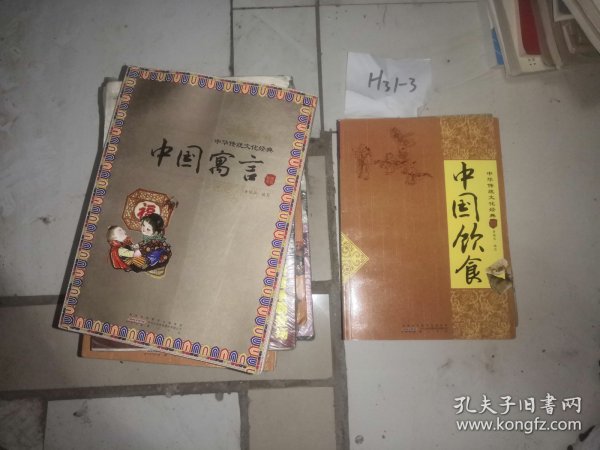 H31-3
中华传统文化经典
中国寓言
福
中华传统文化经典
中国饮食
孔夫子旧书网
www.kongfz.com